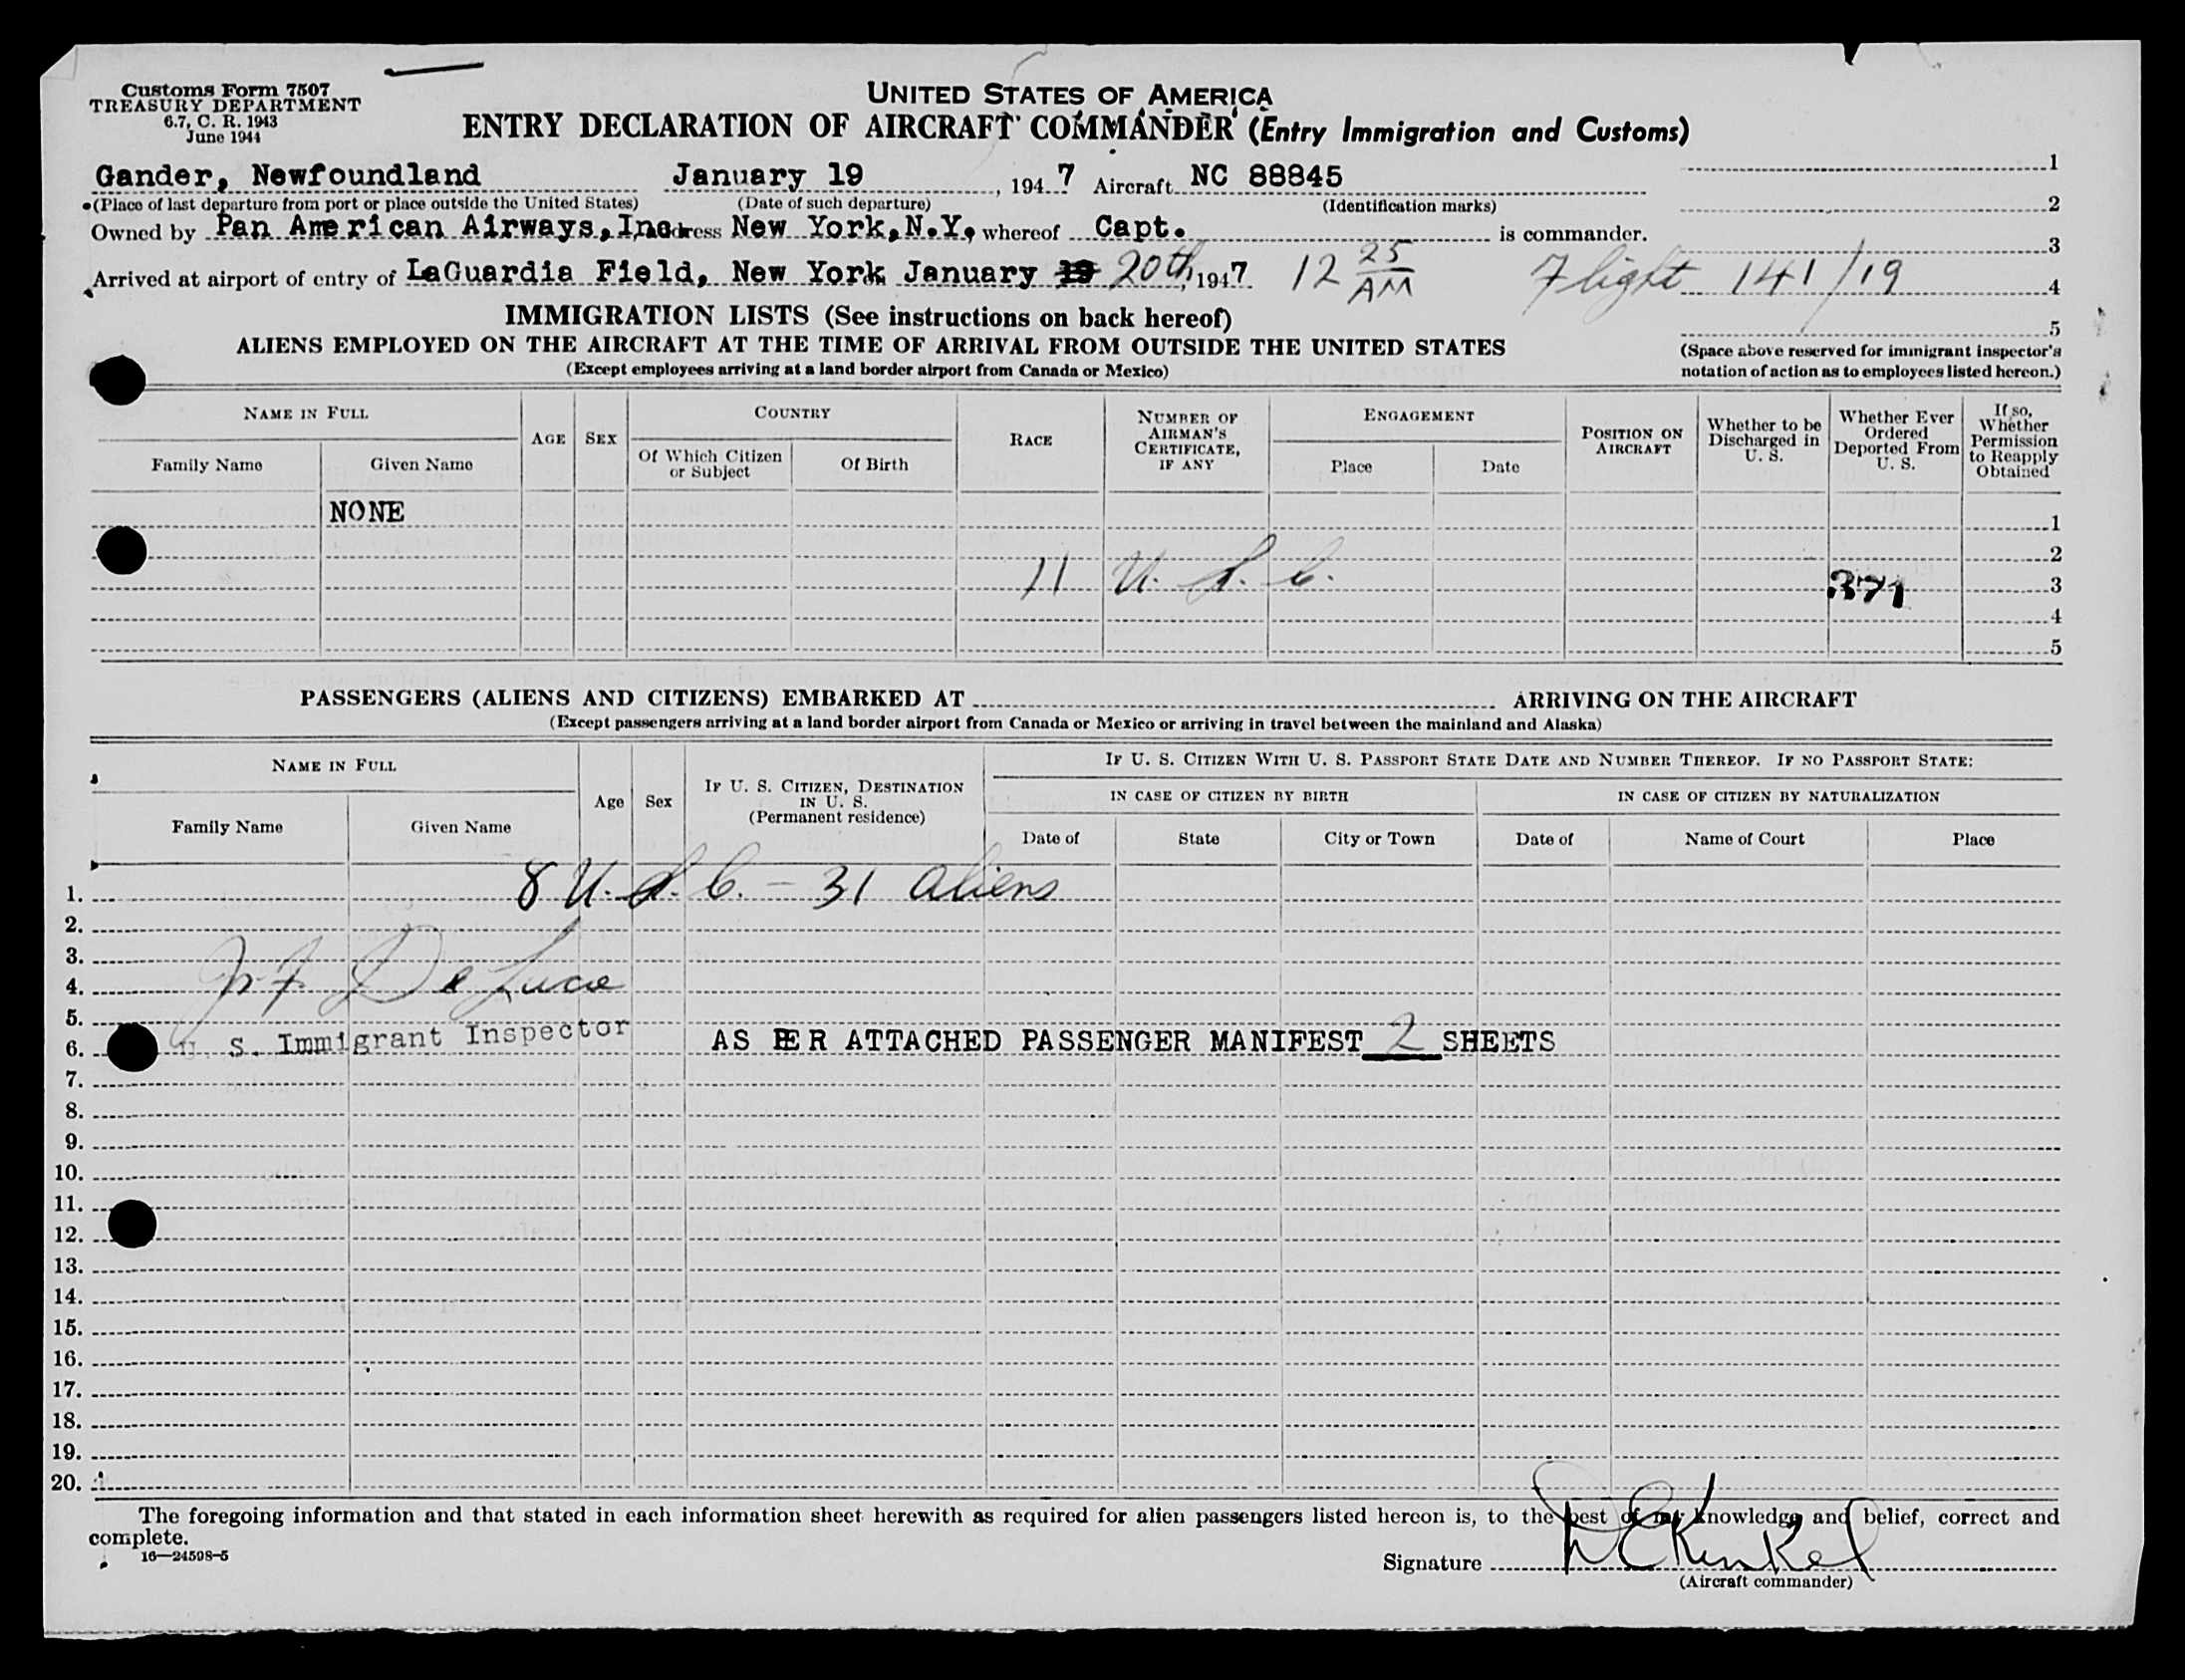 Customs Form 7507
TREASURY DEPARTMENT
6.7, C. R. 1943
June 1944
UNITED STATES OF AMERICA
ENTRY DECLARATION OF AIRCRAFT COMMANDER (Entry Immigration and Customs)
Gander, Newfoundland January 19, 1947 Aircraft NC 88845
(Place of last departure from port or place outside the United States) (Date of such departure) (Identification marks)
Owned by Pan American Airways, Inc. Address New York, N.Y. whereof Capt. is commander.
Arrived at airport of entry of LaGuardia Field, New York January 19 20th, 1947 12 25 AM Flight 141/19
1
2
3
4
5
(Space above reserved for immigrant inspector's
notation of action as to employees listed hereon.)
IMMIGRATION LISTS (See instructions on back hereof)
ALIENS EMPLOYED ON THE AIRCRAFT AT THE TIME OF ARRIVAL FROM OUTSIDE THE UNITED STATES
(Except employees arriving at a land border airport from Canada or Mexico)
NAME IN FULL
Family Name
Given Name
AGE
SEX
COUNTRY
Of Which Citizen or Subject
Of Birth
RACE
NUMBER OF AIRMAN'S CERTIFICATE, IF ANY
ENGAGEMENT
Place
Date
POSITION ON AIRCRAFT
Whether to be Discharged in U. S.
Whether Ever Ordered Deported From U. S.
If so, Whether Permission to Reapply Obtained
NONE
1
2
11 U. S. C. 371
3
4
5
PASSENGERS (ALIENS AND CITIZENS) EMBARKED AT ARRIVING ON THE AIRCRAFT
(Except passengers arriving at a land border airport from Canada or Mexico or arriving in travel between the mainland and Alaska)
NAME IN FULL
Family Name
Given Name
Age
Sex
IF U. S. CITIZEN, DESTINATION IN U. S.
(Permanent residence)
IF U. S. CITIZEN WITH U. S. PASSPORT STATE DATE AND NUMBER THEREOF. IF NO PASSPORT STATE:
IN CASE OF CITIZEN BY BIRTH
IN CASE OF CITIZEN BY NATURALIZATION
Date of
State
City or Town
Date of
Name of Court
Place
1. 8 U. S. C. - 31 aliens
2.
3.
4. De Luca
5.
U. S. Immigrant Inspector
6. AS PER ATTACHED PASSENGER MANIFEST 2 SHEETS
7.
8.
9.
10.
11.
12.
13.
14.
15.
16.
17.
18.
19.
20.
The foregoing information and that stated in each information sheet herewith as required for alien passengers listed hereon is, to the best of my knowledge and belief, correct and
complete.
16—24598-5
Signature
(Aircraft commander)